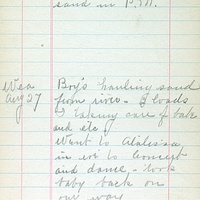 sand in P.M.
Wed Boy's hauling sand
Aug 27 from river - 3 loads
I taking care of babe
and etc
Went to
in eve to concert
and dance - took
baby back on
our way